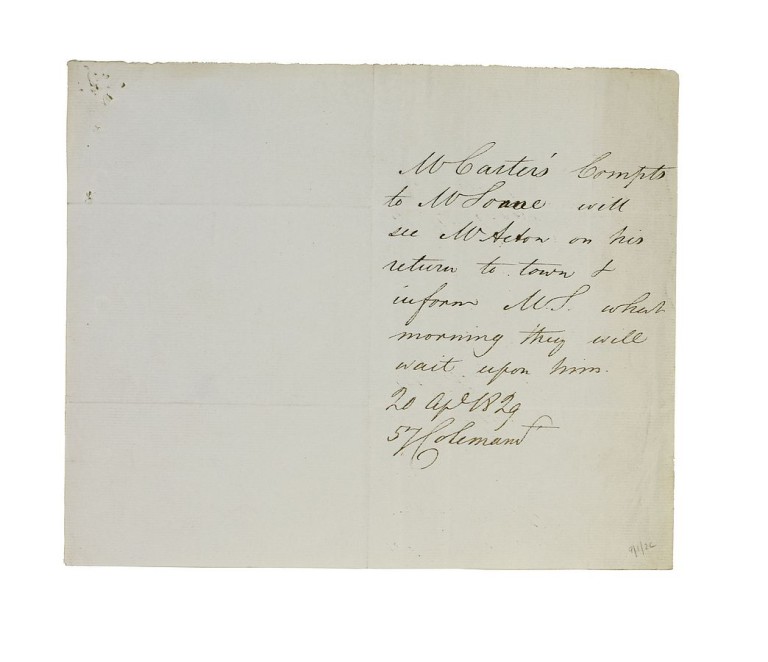 Mr Carter's Compts
to Mr Soane will
see Mr Acton on his
return to town &
inform Mr S. what
morning they will
wait upon him.
20 Apl 1829
57 Coleman St